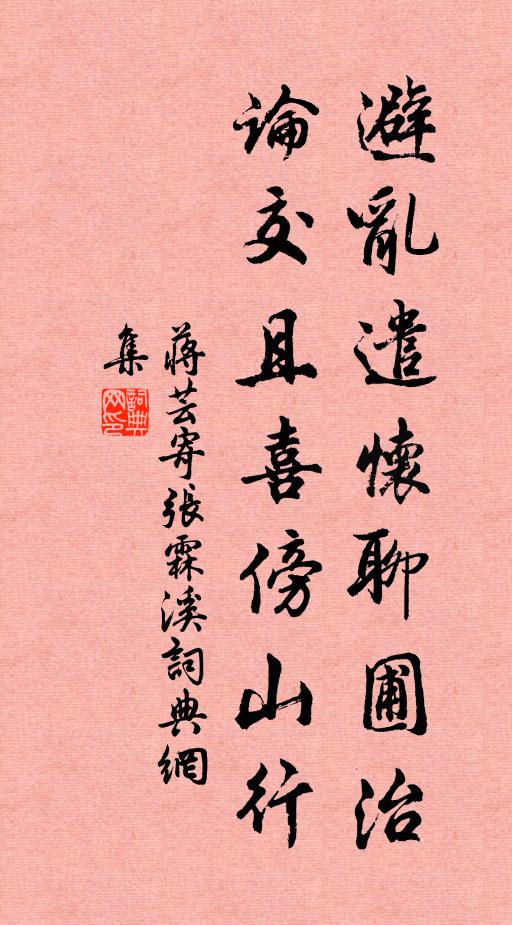 避亂遣懷聊圃治
論交且喜傍山行
蔣芸寄張霖溪詞典網
集
詞典網印